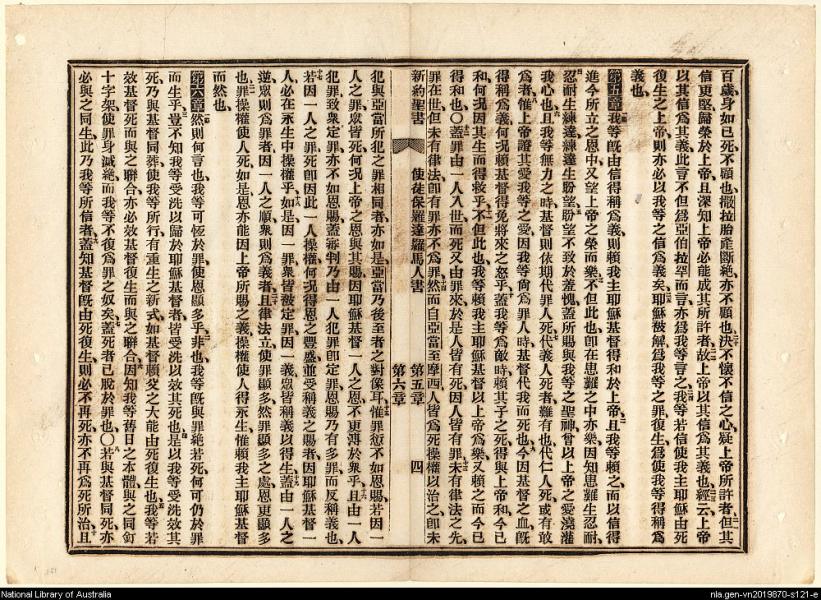 百歲身如已死不顧也撒拉胎產斷絶亦不顧也決不懷不信之心疑上帝所許者但其
信更堅歸榮於上帝且深知上帝必能成其所許者故上帝以其信爲其義也經云上帝
以其信爲其義此言不但爲亞伯拉罕而言亦爲我等言之我等若信使我主耶穌由死
復生之上帝則亦必以我等之信爲義矣耶穌被解爲我等之罪復生爲使我等得稱爲
義也
第五章我等旣由信得稱爲義則賴我主耶穌基督得和於上帝且我等賴之而以信得
進今所立之恩中又望上帝之榮而樂不但此也卽在患難之中亦樂因知患難生忍耐
忍耐生練達練達生盼望盼望不致於羞愧蓋所賜與我等之聖神曾以上帝之愛澆灌
我心也且我等無力之時基督則依期代罪人死代義人死者難有也代仁人死或有敢
爲者惟上帝證其愛我等之愛因我等尙爲罪人時基督代我而死也今因基督之血旣
得稱爲義何況賴其得免將來之怒乎蓋我等爲敵時賴其子之死得與上帝和今已
和何況因其生而得救乎不但此也我等賴我主耶穌基督以上帝爲樂又賴之而今已
得和也〇蓋罪由一人入世而死又由罪來於是人皆有死因人皆有罪未有律法之先
罪在世但未有律法卽有罪亦不爲罪然而自亞當至摩西人皆爲死操權以治之卽未
新約聖書
使徒保羅達羅馬人書
第五章
第六章
四
犯與亞當所犯之罪相同者亦如是亞當乃後至者之對像耳惟罪愆不如恩賜若因一
人之罪眾皆死何況上帝之恩與其賜因耶穌基督一人之恩不更溥於衆乎且由一人
犯罪致衆定罪亦不如恩賜蓋審判乃由一人犯罪卽定罪恩賜乃有多罪而反稱義也
若因一人之罪死卽因此一人操權何況得恩之豐盛並受稱義之賜者因耶穌基督一
人必在永生中操權乎如是因一罪衆皆被定罪因一義眾皆稱義以得生蓋由一人之
逆眾則爲罪者因一人之順衆則爲義者且律法立使罪顯多然罪顯多之處恩更顯多
也罪操權使人死如是恩亦能因上帝所賜之義操權使人得永生惟賴我主耶穌基督
而然也
第六章然則何言也我等可恆於罪使恩顯多乎非也我等旣與罪絶若死何可仍於罪
而生乎豈不知我等受洗以歸於耶穌基督者皆受洗以效其死也是以我等受洗效其
死乃與基督同葬使我等所行有重生之新式如基督賴父之大能由死復生也我等若
效基督死而與之聯合亦必效基督復生而與之聯合因知我等舊日之本體與之同釘
十字架使罪身滅絶而我等不復爲罪之奴矣蓋死者已脫於罪也〇若與基督同死亦
必與之同生此乃我等所信者蓋知基督旣由死復生則必不再死亦不再爲死所治且
National Library of Australia
nla.gen-vn2019870-s121-e